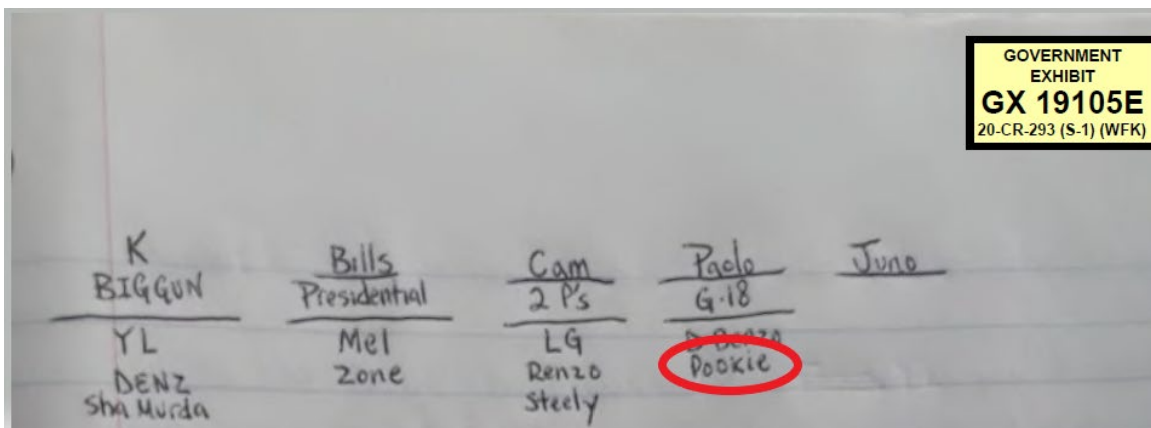 GOVERNMENT
EXHIBIT
GX 19105E
20-CR-293 (S-1) (WFK)
K
BIGGUN
YL
DENZ
Sha Murda
Bills
Presidential
Mel
Zone
Cam
2 P's
LG
Renzo
Steely
Paolo
G-18
Pookie
Juno